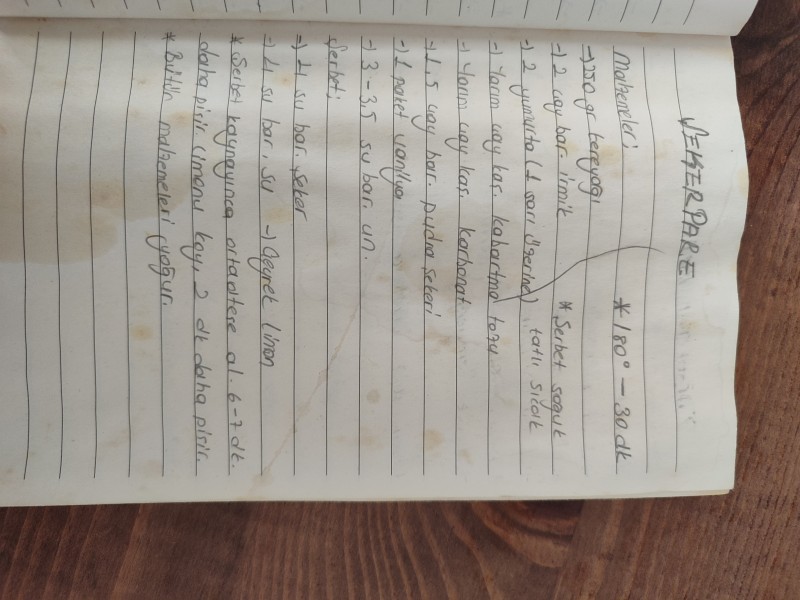 ŞEKERPARE
Malzemeleri * 180° - 30 dk
→ 250 gr tereyağı
→ 2 çay bar. irmik * Şerbet soğuk
→ 2 yumurta (1 sarı üzerine) tatlı sıcak
→ Yarım çay kaş. kabartma tozu
→ Yarım çay kaş. karbonat
→ 1,5 çay bar. pudra şekeri
→ 1 paket vanilya
→ 3 - 3,5 su bar. un.
Şerbet;
→ 4 su bar. şeker
→ 4 su bar. su → Çeyrek limon
* Şerbet kaynayınca orta ateşe al. 6-7 dk.
daha pişir limonu koy, 2 dk daha pişir.
* Bütün malzemeleri yoğur.